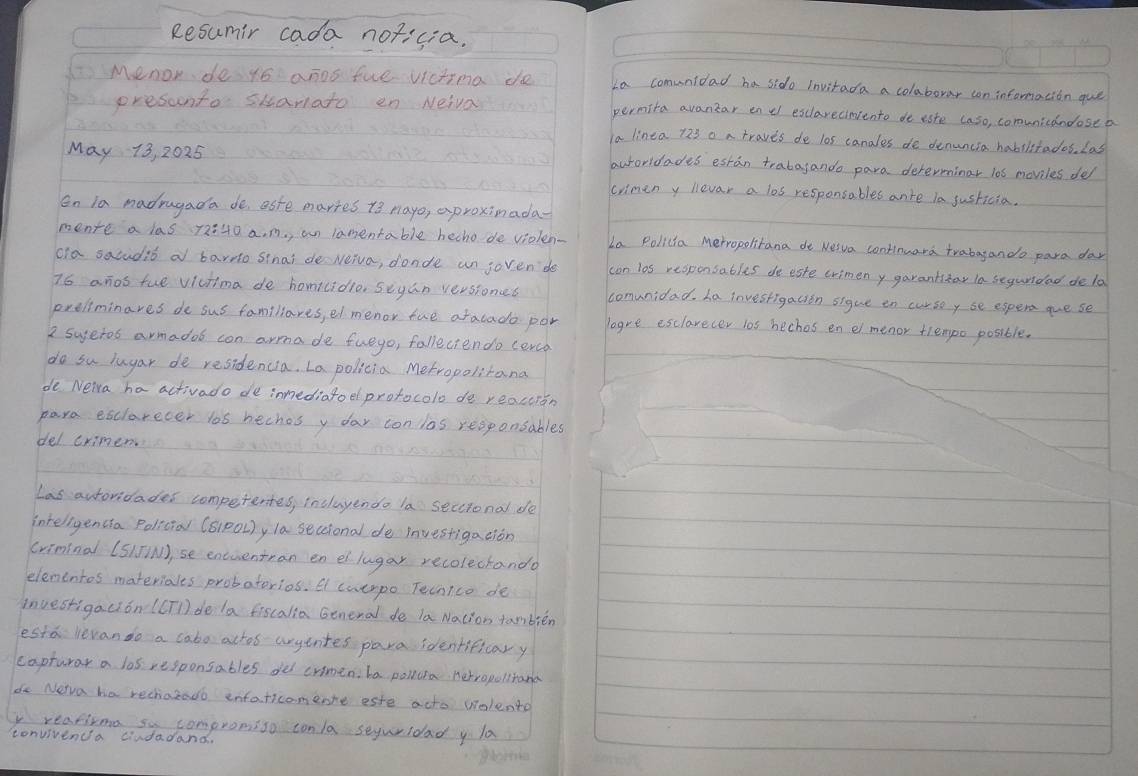 Resumir cada noticia.
Menor de 16 años fue victima de
presunto sicariato en Neiva
May 13, 2025
En la madrugada de este martes 13 mayo, aproximada-
mente a las 12:40 a.m., un lamentable hecho de violen-
cia sacudió al barrio Sinai de Neiva, donde un joven de
16 años fue victima de homicidio. Según versiones
preliminares de sus familiares, el menor fue atacado por
2 sujetos armados con arma de fuego, falleciendo cerca
de su lugar de residencia. La policia Metropolitana
de Neiva ha activado de inmediato el protocolo de reacción
para esclarecer los hechos y dar con los responsables
del crimen.
Las autoridades competentes, incluyendo la seccional de
inteligencia Policial (SIPOL) y la seccional de investigación
Criminal (SIJIN), se encuentran en el lugar recolectando
elementos materiales probatorios. El cuerpo Tecnico de
investigación (CTI) de la fiscalia General de la Nacion también
está llevando a cabo actos urgentes para identificar y
capturar a los responsables del crimen. La policia Metropolitana
de Neiva ha rechazado enfaticamente este acto violento
y reafirma su compromiso con la seguridad y la
convivencia ciudadana.
La comunidad ha sido invitada a colaborar con información que
permita avanzar en el esclarecimiento de este caso, comunicándose a
la linea 123 o a través de los canales de denuncia habilitados. Las
autoridades están trabajando para determinar los moviles del
crimen y llevar a los responsables ante la justicia.
La Policia Metropolitana de Neiva continuará trabajando para dar
con los responsables de este crimen y garantizar la seguridad de la
comunidad. La investigación sigue en curso y se espera que se
logre esclarecer los hechos en el menor tiempo posible.